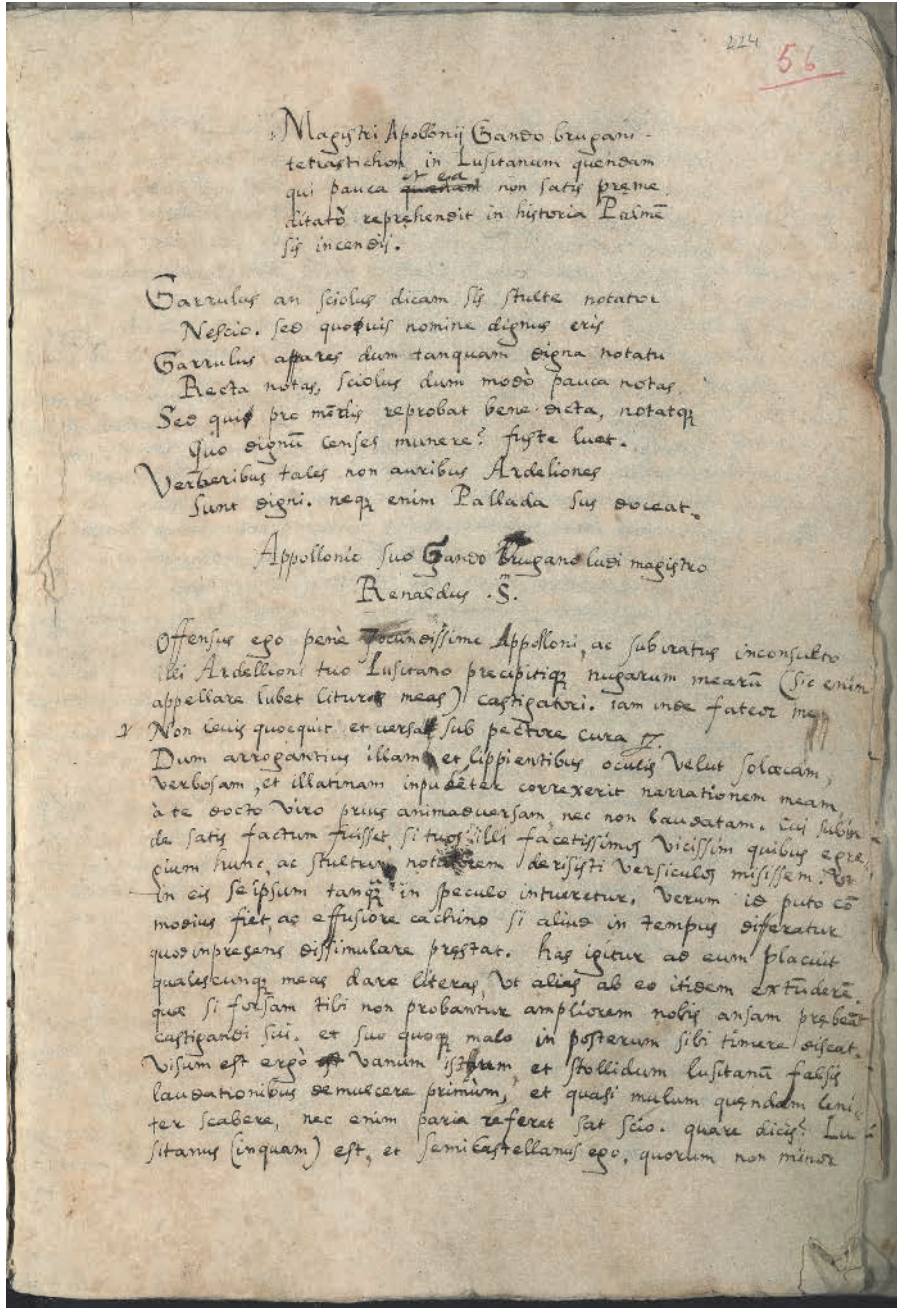 224
56
Magistri Apollonij Gando brugani
tetrastichon in Lusitanum quendam
et ea
qui pauca quedam non satis preme
ditato reprehendit in historia Palmē
sis incendij.
Garrulus an sciolus dicam sis stulte notator
Nescio. sed quovis nomine dignus eris
Garrulus appares dum tanquam digna notatu
Recta notas, sciolus dum modò pauca notas.
Sed quis pro mēdis reprobat bene dicta, notatq;
Quo dignū censes munere? fuste luet.
Verberibus tales non auribus Ardeliones
Sunt digni. neq; enim Pallada sus doceat.
Appollonio suo Gando Brugano ludi magistro
Renaldus .S.
Offensus ego penè Jocundissime Appolloni, ac subiratus inconsulto
illi Ardellioni tuo Lusitano precipitiq; nugarum mearū (sic enim
appellare lubet lituras meas) castigatori. iam inde fateor me
Non levis quoequit et versat sub pectore cura
Dum arrogantius illam et lippientibus oculis velut solœcam,
verbosam, et illatinam inpudēter correxerit narrationem meam
à te docto viro prius animadversam, nec non laudatam. Cui subin
de satis factum fuisset, si tuos illi facetissimos vicissim quibus egre
gium hunc, ac stultum notatorem derisisti versiculos misissem. Ut
in eis seipsum tanq̄ in speculo intueretur. Verum id puto cō
modius fiet, ac effusiore cachino si aliud in tempus differatur
quod inpresens dissimulare prestat. has igitur ad eum placuit
qualescunq; meas dare literas, Ut alias ab eo itidem extūderē
que si forsam tibi non probantur ampliorem nobis ansam prebeāt
castigandi sui. et suo quoq; malo in posterum sibi timere discat.
Visum est ergò vanum istum, et stollidum lusitanū falsis
laudationibus demulcere primùm, et quasi mulum quendam leni
ter scabere, nec enim paria referet sat scio. quare dicis? Lu
sitanus (inquam) est, et semicastellanus ego, quorum non minor